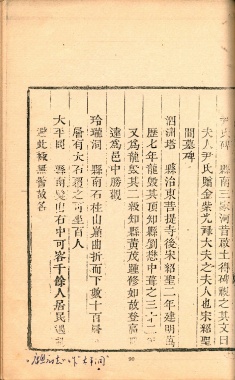 尹氏碑　縣南三家河昔啟土得碑視之其文曰
夫人尹氏贈金紫光祿大夫之夫人也宋紹聖
間墓碑
泗洲塔　縣治東菩提寺後宋紹聖二年建明萬
歷七年龍毀其頂知縣劉思中葺之三十二年
又為龍毀其二級知縣黃茂重修如故登高望
遠為邑中勝觀
玲瓏洞　縣南石柱山巖曲折而下數十百層
層有大石覆之可坐百人
大平洞　縣南 石中可客千餘人居民遇
避此極無警故名